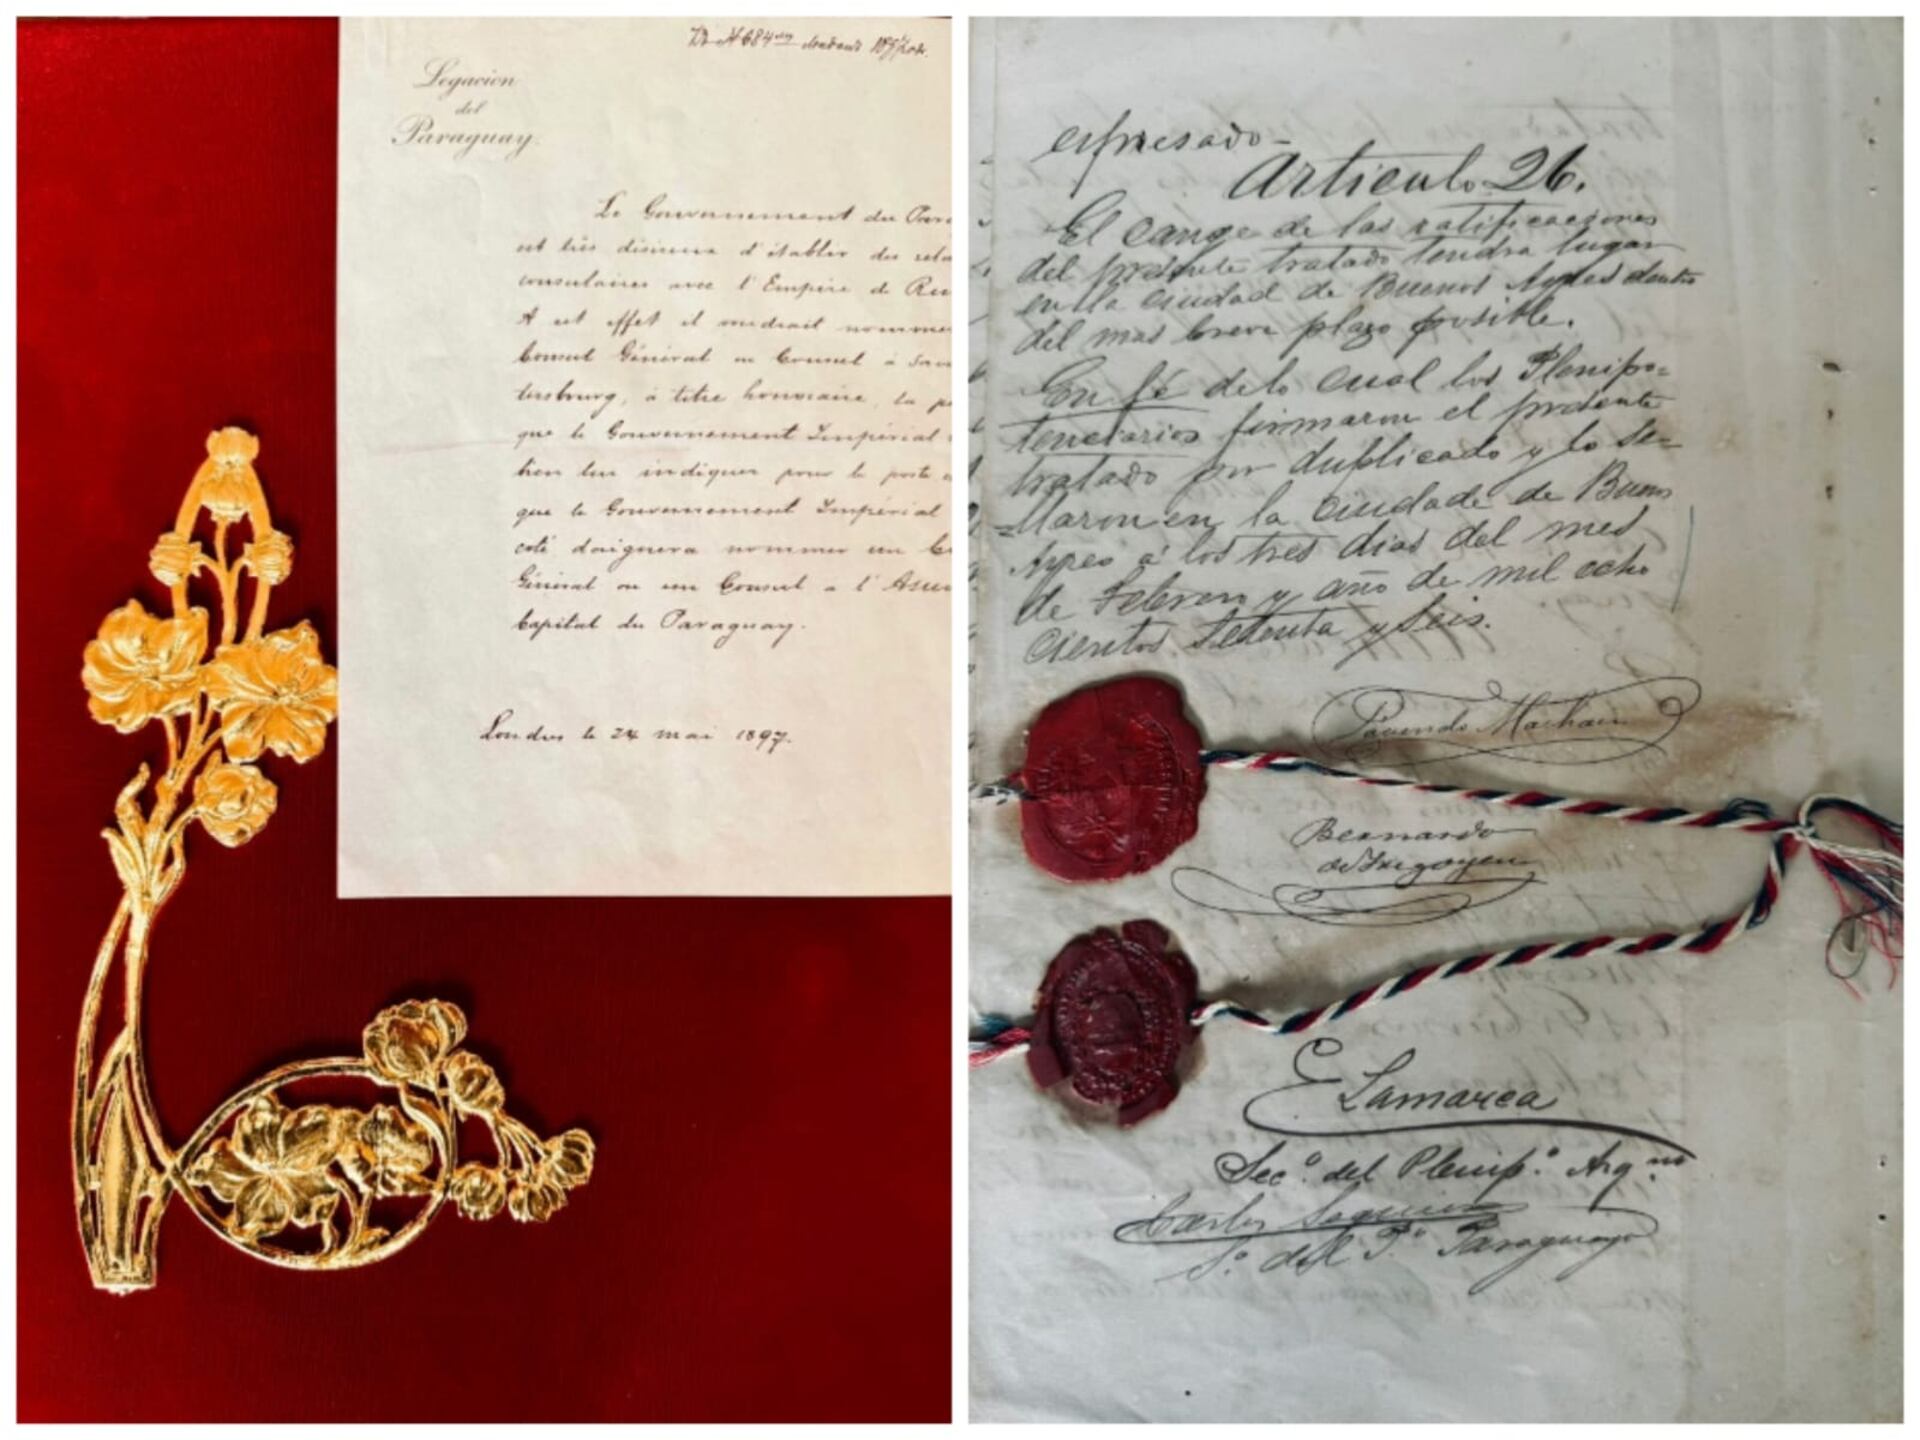 Legacion
del
Paraguay.
Le Gouvernement du Para
est très désireux d'établir des rela
consulaires avec l'Empire de Ru
A cet effet il voudrait nommer
Consul Général ou Consul à Sain
tersbourg, à titre honoraire, la pe
que le Gouvernement Impérial
bien lui indiquer pour le poste e
que le Gouvernement Impérial
coté daignera nommer un C
Général ou un Consul a l'Asun
Capital du Paraguay.
Londres le 24 mai 1897.
espresado-
Articulo 26.
El cange de las ratificaciones
del presente tratado tendra lugar
en la ciudad de Buenos Ayres dentro
del mas breve plazo posible.
En fé de lo cual los Plenipo=
tenciarios firmaron el presente
tratado por duplicado y lo se-
=llaron en la ciudad de Buenos
Ayres á los tres dias del mes
de Febrero y año de mil ocho
cientos setenta y seis.
Facundo Machain
Bernardo
de Irigoyen
E Lamarca
Sec.º del Plenip.º Arg.no
Carlos Saguier
S.º del P.º Paraguayo